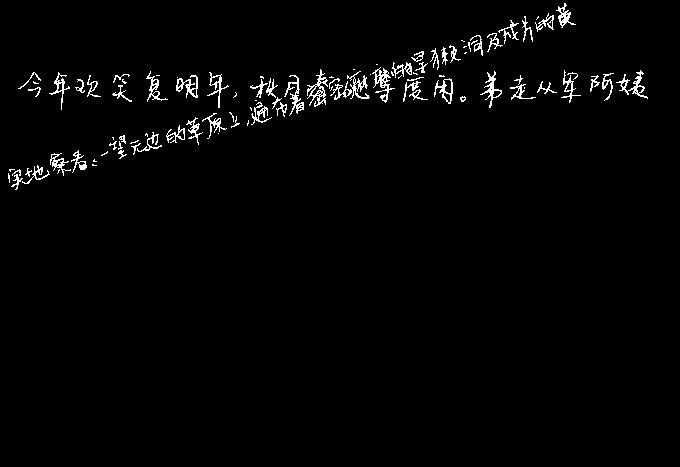 今年欢笑复明年,秋月春等度闲。弟走从军阿姨
实地察看,一望无边的草原上,遍布着密密麻麻的旱獭洞及成片的黄